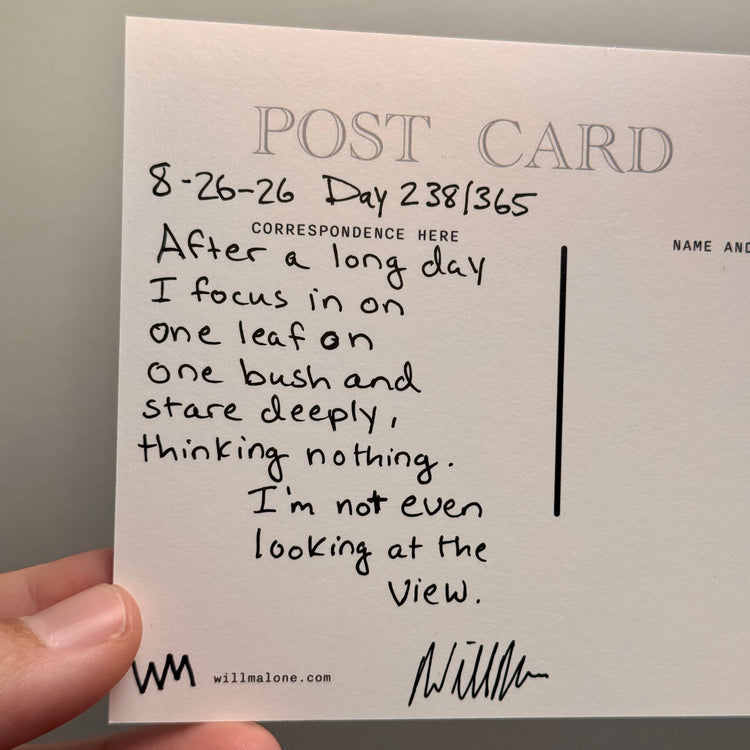 POST CARD
8-26-26 Day 238/365
CORRESPONDENCE HERE
NAME AND
After a long day
I focus in on
one leaf on
one bush and
stare deeply,
thinking nothing.
I'm not even
looking at the
view.
WM willmalone.com